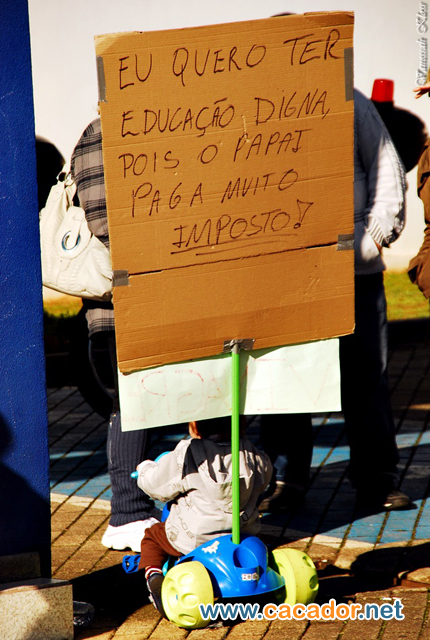 EU QUERO TER
EDUCAÇÃO DIGNA,
POIS O PAPAI
PAGA MUITO
IMPOSTO!
www.cacador.net